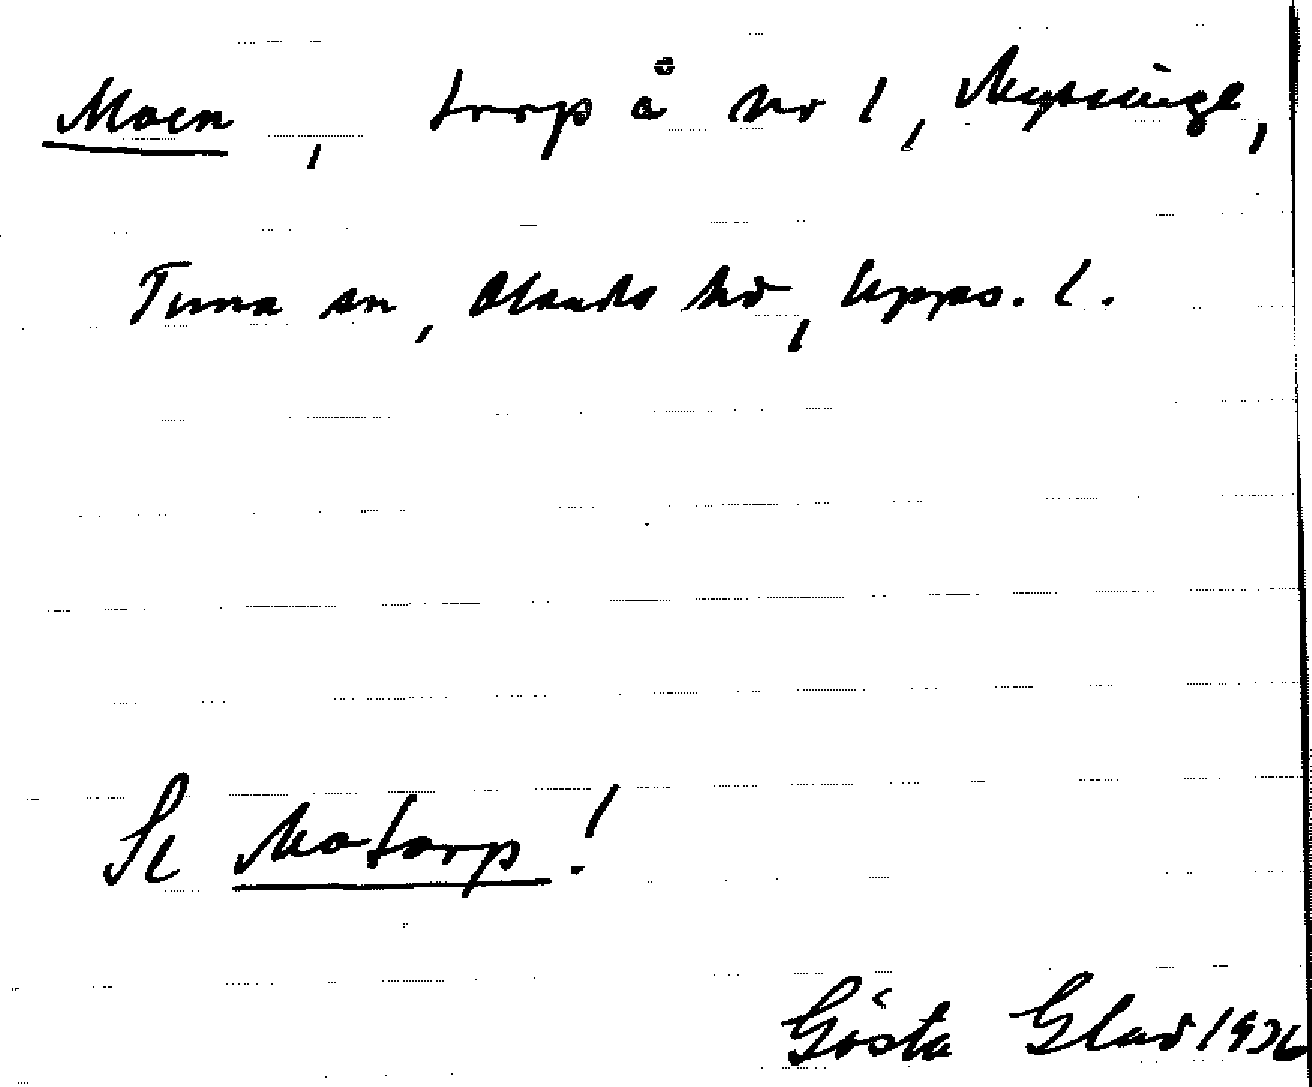 Moen, torp å Nr 1, Mysinge,
Tuna sn, Olands hd, Upps. l.
Se Motorp!
Gösta Glad 1936